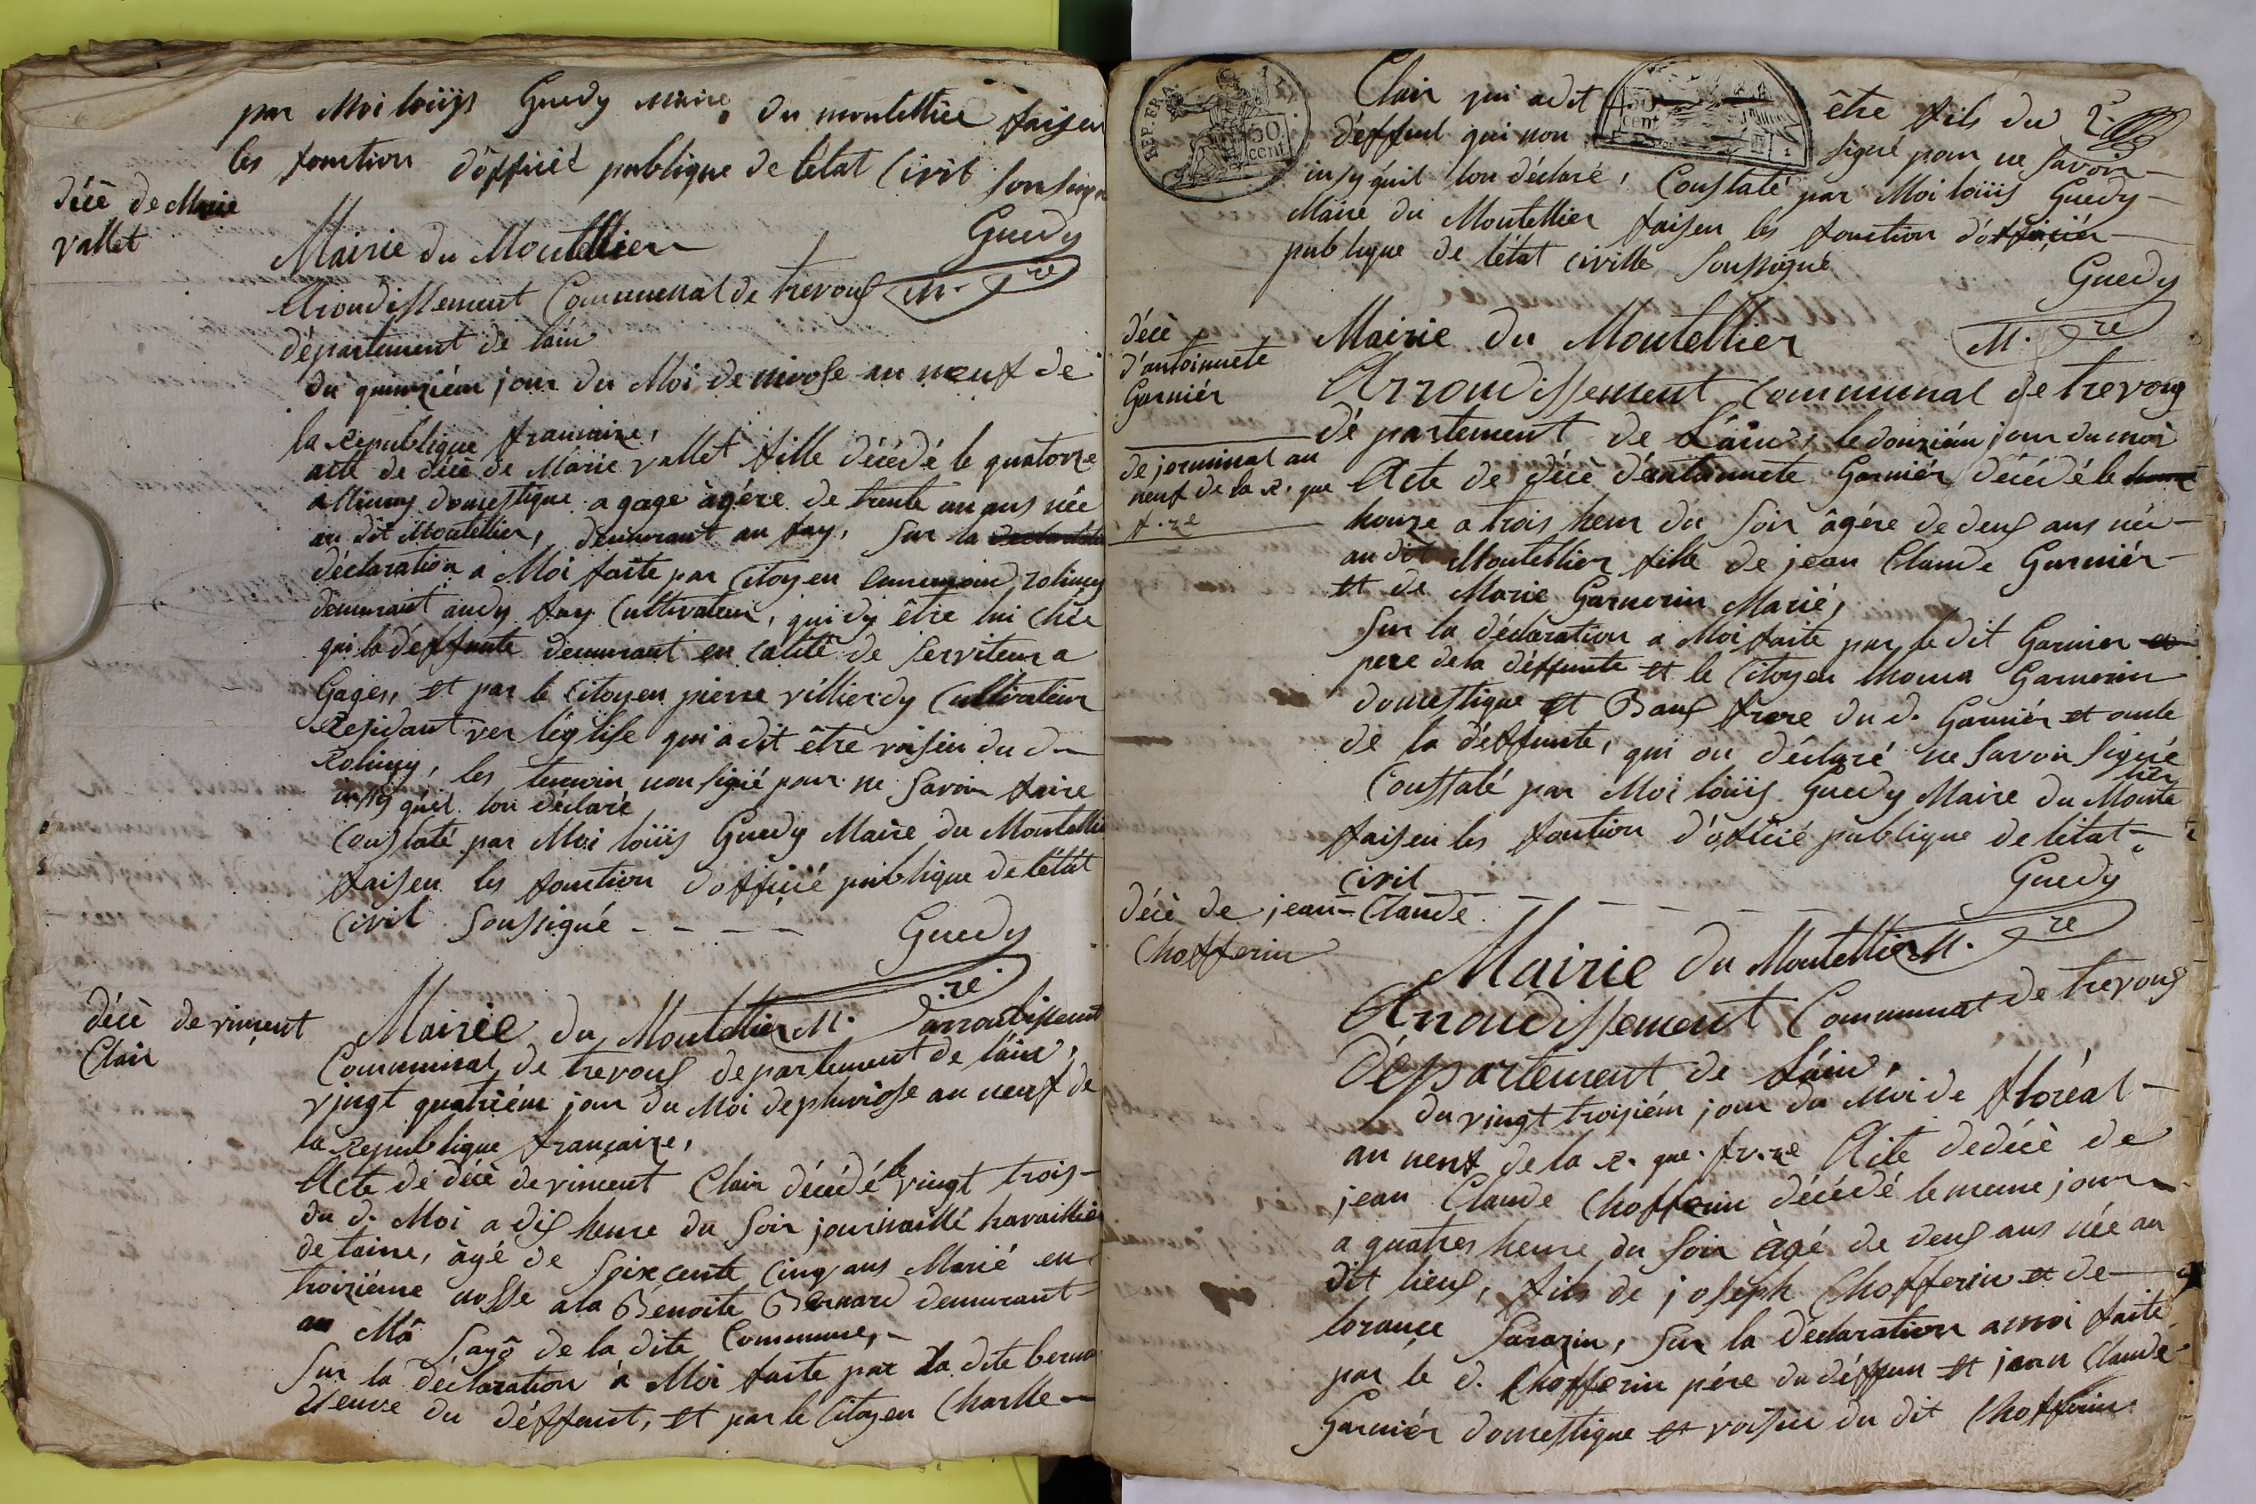 par Moi loüijs Guedy Maire du montellier faisen
les fonction d'officié publique de l'état Civil sousigné
décè de Marie
vallet
Guedy
M. re
Mairie du Montellier
Arondissement Communal de trevous
département de l'ain
du quinziém jour du Moi de nivose an neuf de
la republique francaize,
acte de décè de Marie vallet fille décédé le quatorze
a Minuy domestique a gage àgére de trente un ans née
au dit Montellier, demurant au fay, sur la
déclaration a Moi faite par Citoyen rolimy
demurant audy fay Cultivateur, qui dy être lui chée
qui la déffunte demurant en calité de serviteur a
Gages, et par le Citoyen pierre villierdy Cultivateur
Residant ver l'église qui a dit être voisin du d-
Rolimy, les temoin non signé pour ne savoir faire
insy quil lon déclaré
Constaté par Moi loüijs Guedy Maire du Montellie
faisen les fonction d'officié publique de l'état
Civil soussigné - - - -
Guedy
M. re
décè de vincent
Clair
Mairie du Montellier arrondissement
Communal de trevous departement de l'ain,
vingt quatriém jour du Moi de pluviose an neuf de
la Republique française,
Acte de décè de vincent Clair décédé le vingt trois-
du d. Moi a dis heure du soir journaillé travaillier
de taire, àgé de soixcente cinq ans Marié en
troiziéme nosse a la Benoite Bernard demurant-
au Mâ sayô de la dite Commune,-
sur la déclaration à Moi faite par la dite berna
veuve du déffunt, et par le Citoyen Charlle-
REP. FRA.
50
cent
Clair qui a dit être fils du d.
déffunt qui non signé pour ne savoir-
insy quil lon déclaré, Constaté par Moi loüijs Guedy-
Maire du Montellier faisen les fonction d'officiér-
publique de l'état civille soussigné
Guedy
M. re
décè
d'antoinnete
Garniér
Mairie du Montellier
Arrondissement Communal de trevous
département de L'ain, le douziém jour du moi
de jerminal an
neuf de la R. que
f. ze
Acte de décè d'antoinnete Garniér décédé le
honze a trois heur du soir âgére de deus ans née-
au dit Montellier fille de jean Claude Garniér-
et de Marie Garnerin Marié,
sur la déclaration a Moi faite par le dit Garnier
pere de la déffunte et le Citoyen thoma Garnerin
domestique et Baus frere du d. Garniér et oncle
de la déffunte, qui on déclaré ne savoir signé
Constaté par Moi loüijs Guedy Maire du Monte
lier
faisen les fontion d'oficié publique de l'état-
civil
Guedy
M. re
décè de jean-Claude
Chofferin
Mairie du Montellier
Arrondissement Communal de trevous
Département de L'ain,
du vingt troisiém jour du Moi de floréal-
an neuf de la R. que. fr. ze Acte de décè de
jean Claude Chofferin décédé le meme jour
a quatres heure du soir àgé de deus ans née au
dit lieus, fils de joseph Chofferin et de-
lorance sarazin, sur la déclaration a moi faite
par le d. Chofferin pére du déffun et jean Claude
Garniér domestique et voisin du dit Chofferin